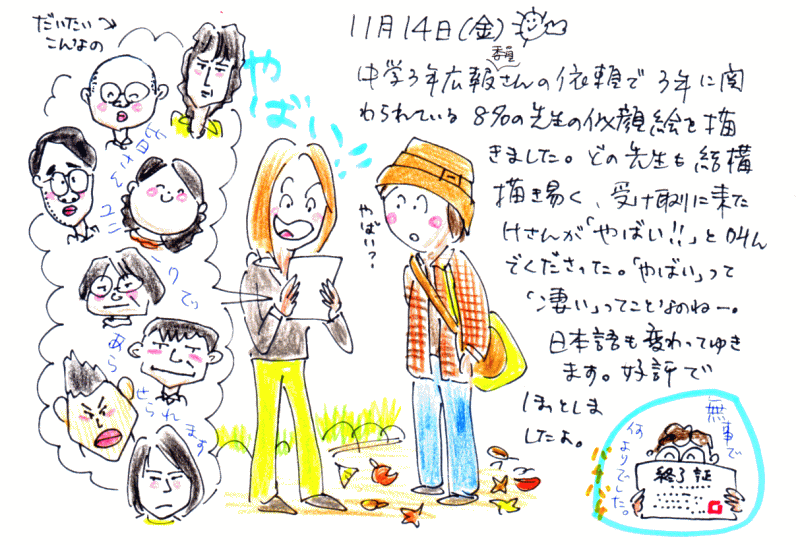 だいたい
こんなの
やばい!!
やばい?
11月14日(金)
中学3年広報委員さんの依頼で 3年に関
わられている 8名の先生の似顔絵を描
きました。どの先生も結構
描き易く、受け取りに来た
さんが「やばい!!」と叫ん
でくださった。「やばい」って
「凄い」ってことなのねー。
日本語も変わってゆき
ます。好評で
ほっとしま
したよ。
あら
せられます
無事で
何よりでした。
終了証